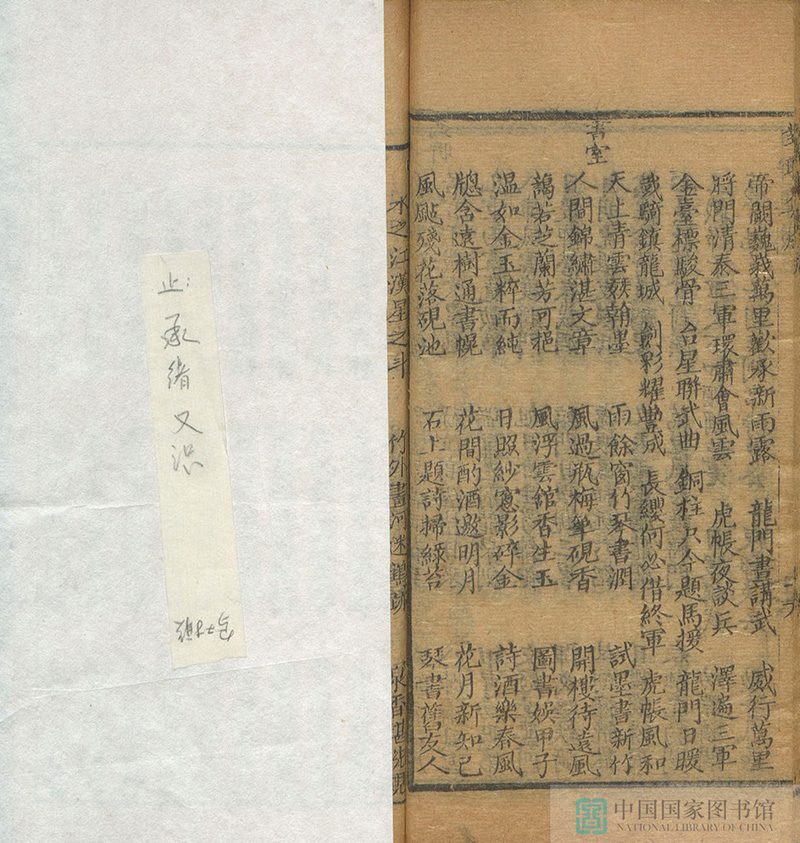 帝闕巍峩萬里歡承新雨露 龍門晝講武 威行萬里
將門清泰三軍環肅會風雲 虎帳夜談兵 澤遍三軍
金臺標駿骨 占星聯武曲 銅柱只今題馬援 龍門日暖
戟騎鎮龍城 劍彩耀豐城 長纓何必借終軍 虎帳風和
書室
天上青雲
翰墨 雨餘窗竹琴書潤 試墨書新竹
人間錦繡湛文章 風過瓶梅筆硯香 開樓待遠風
藹若芝蘭芳可挹 風浮雲綰香生玉 圖書娛甲子
温如金玉粹而純 日照紗窻影碎金 詩酒樂春風
牕含遠樹通書幌 花間酌酒邀明月 花月新知己
風颭殘花落硯池 石上題詩掃綠苔 琴書舊友人
水之江漢星之斗 竹外書
止:承緒又识
中国国家图书馆
NATIONAL LIBRARY OF CHINA